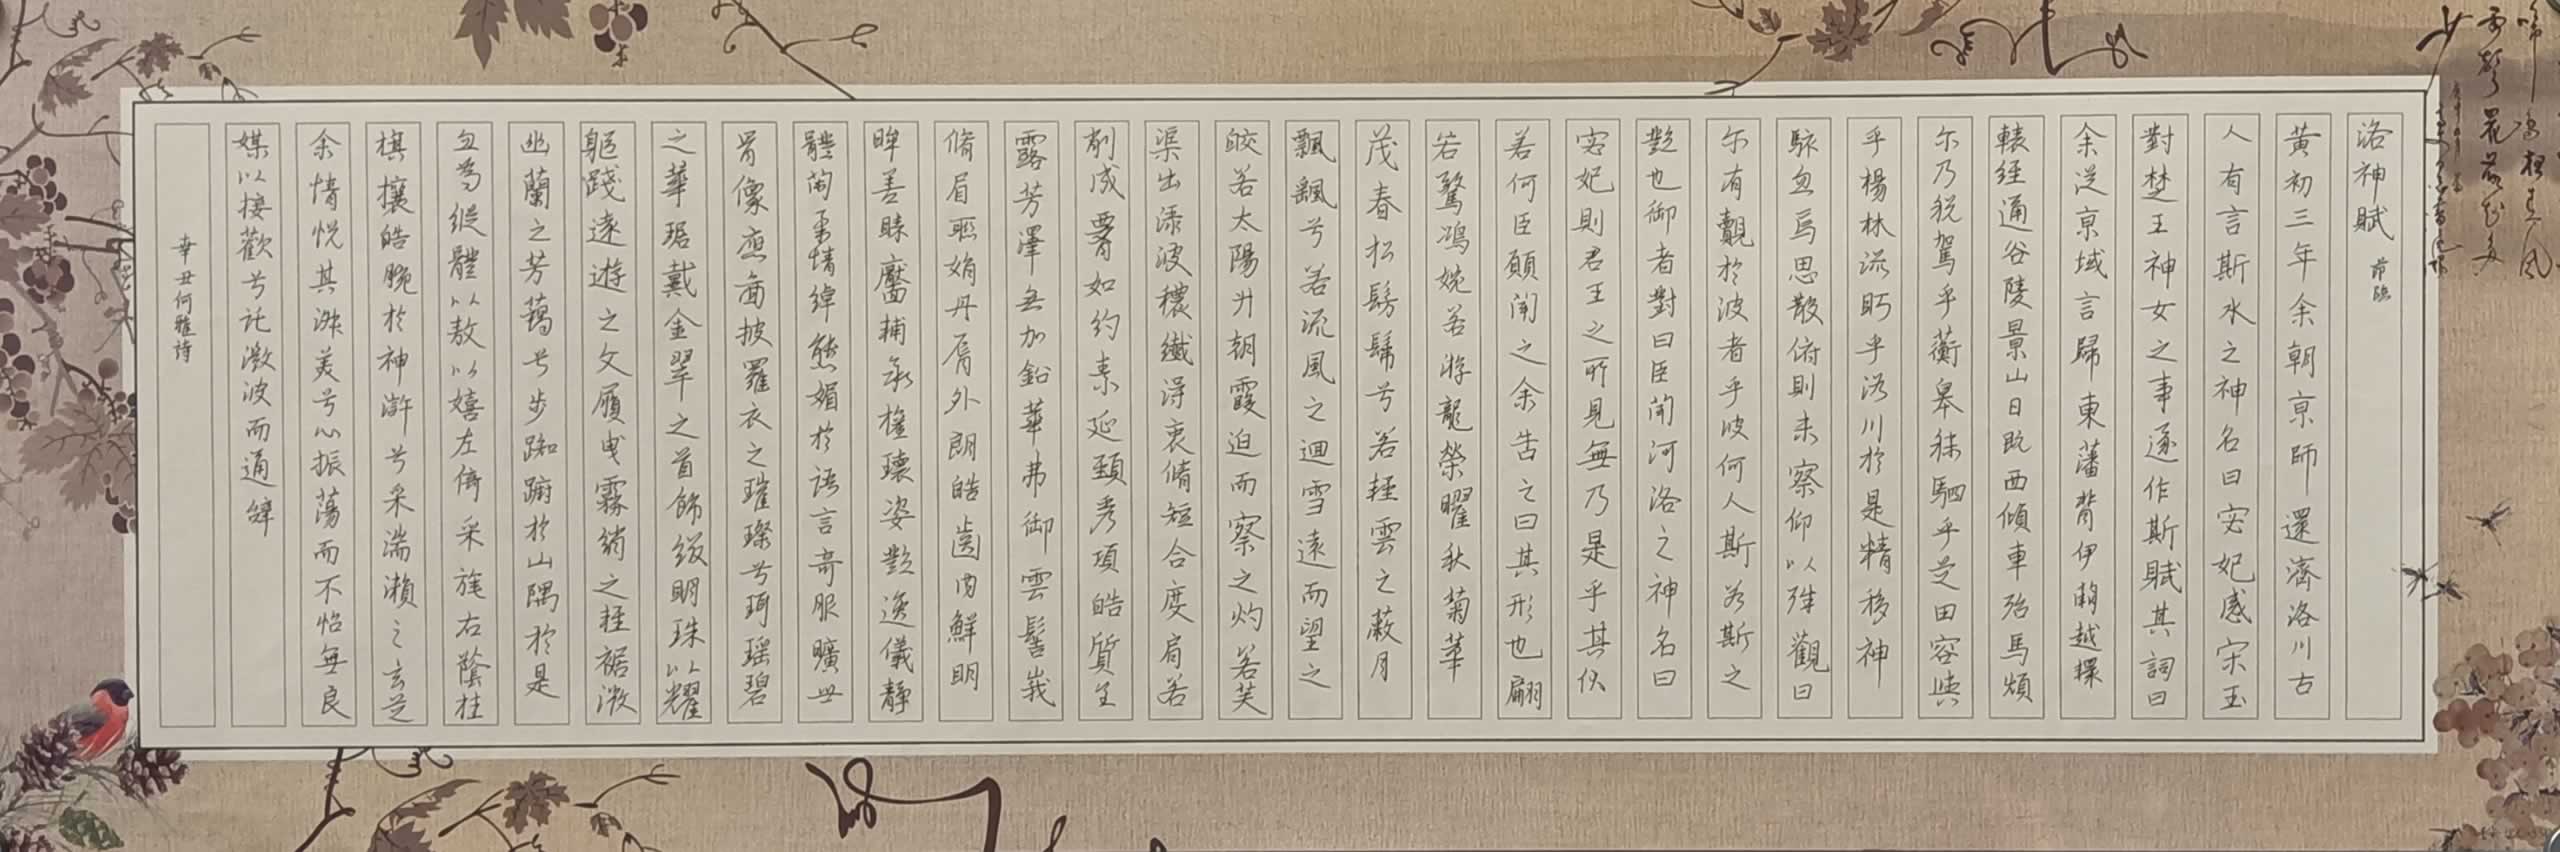 洛神賦 節臨
黃初三年余朝京師還濟洛川古
人有言斯水之神名曰宓妃感宋玉
對楚王神女之事遂作斯賦其詞曰
余從京域言歸東藩背伊闕越轘
轅經通谷陵景山日既西傾車殆馬煩
尔乃稅駕乎蘅皋秣駟乎芝田容與
乎楊林流眄乎洛川於是精移神
駭忽焉思散俯則未察仰以殊觀曰
尓有覿於彼者乎彼何人斯若斯之
豔也御者對曰臣聞河洛之神名曰
宓妃則君王之所見無乃是乎其狀
若何臣願聞之余告之曰其形也翩
若驚鴻婉若游龍榮曜秋菊華
茂春松髣髴兮若輕雲之蔽月
飄颻兮若流風之迴雪遠而望之
皎若太陽升朝霞迫而察之灼若芙
渠出淥波穠纖得衷脩短合度肩若
削成腰如約素延頸秀項皓質呈
露芳澤無加鉛華弗御雲髻峩
脩眉聯娟丹脣外朗皓齒內鮮明
眸善睞靨輔承權瓌姿豔逸儀靜
體閑柔情綽態媚於語言奇服曠世
骨像應圖披羅衣之璀璨兮珥瑶碧
之華琚戴金翠之首飾綴明珠以耀
軀踐遠遊之文履曳霧綃之輕裾微
幽蘭之芳藹兮步踟躕於山隅於是
忽焉縱體以敖以嬉左倚采旄右蔭桂
棋攘皓腕於神滸兮采湍瀨之玄芝
余情悅其淑美兮心振蕩而不怡無良
媒以接歡兮託微波而通辭
辛丑何雅詩